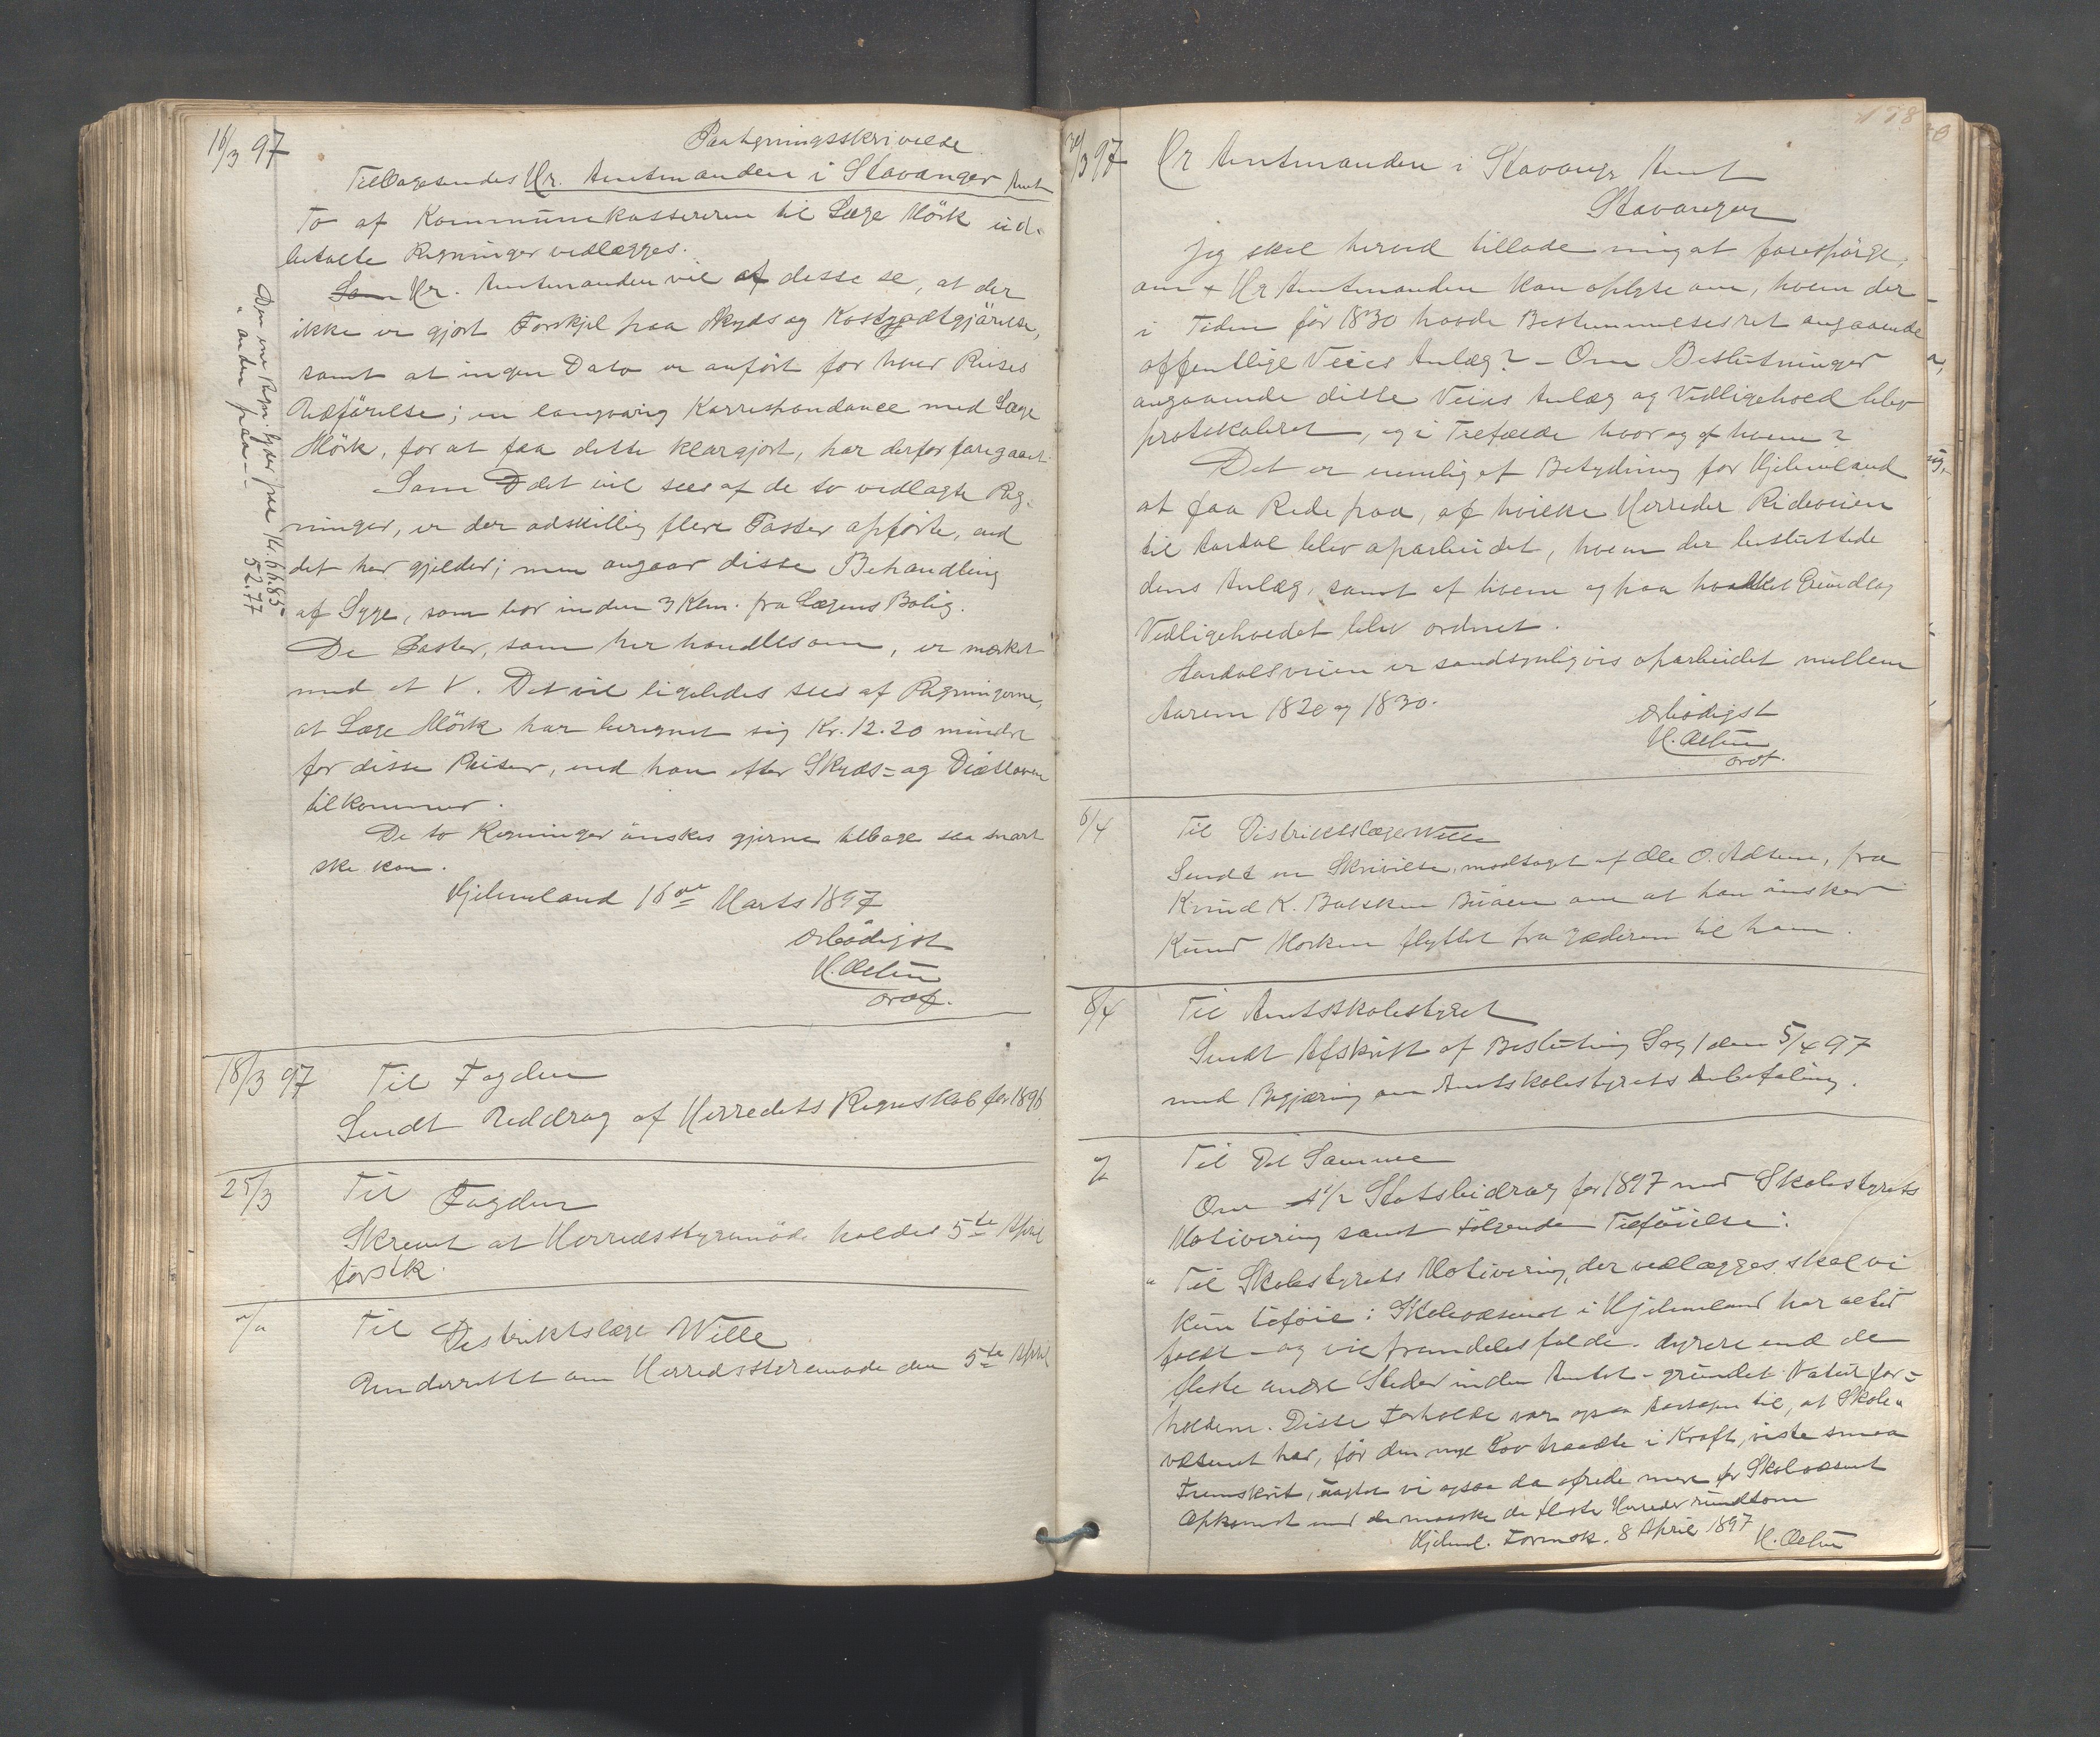 16/3 97
Paategningsskrivelse
Tilbagesendes Hr. Amtmanden i Stavanger Amt
To af Kommunekassereren til Læge Mörk ud-
betalte Regninger vedlægges.
Som Hr. Amtmanden vil af disse se, at der
ikke er gjort Forskjel paa Skyds og Kostgodtgjörelse,
samt at ingen Dato er anfört for hver Reises
Udförelse; en langvarig Korrespondance med Læge
Mörk, for at faa dette klargjort, har derfor foregaaet.
Som det vil sees af de to vedlagte Reg-
ninger, er der adskillig flere Poster opförte, end
det her gjelder; men angaar disse Behandling
af Syge, som bor inden 3 Klm. fra Lægens Bolig.
De Poster, som her handles om, er mærket
med et V. Det vil ligeledes sees af Regningerne,
at Læge Mörk har beregnet sig Kr. 12.20 mindre
for disse Reiser, end han efter Skyds- og Diætloven
tilkommer.
De to Regninger önskes gjerne tilbage saa snart
ske kan.
Hjelmeland 16de Marts 1897
ærbödigst
H.
ordf.
Den ene Regn. lyder paa Kr. 66.85
" anden paa - " - 52.77
18/3 97
Til Fogden
Sendt Uddrag af Herredets Regnskab for 1896
25/3
Til Fogden
Skrevet at Herredsstyremöde holdes 5te April
förstk.
"/"
Til Distriktslæge Wille
Underrettet om Herredsstyremöde den 5te April
178
30/3 97
Hr Amtmanden i Stavanger Amt
Stavanger
Jeg skal herved tillade mig at forespörge,
om Hr Amtmanden kan oplyse om, hvem der
i Tiden för 1830 havde Bestemmelsesret angaaende
offentlige Veies Anlæg? - Om Beslutninger
angaaende disse Veies Anlæg og Vedligehold blev
protokoleret, og i Tilfælde hvor og af hvem?
Det er nemlig af Betydning for Hjelmeland
at faa Rede paa, af hvilke Herreder Rideveien
til Aardal blev oparbeidet, hvem der besluttede
dens Anlæg, samt af hvem og paa hvilket Grundlag
Vedligeholdet blev ordnet.
Aardalsveien er sandsynligvis oparbeidet mellem
Aarene 1820 og 1830.
ærbödigst
H.
ordf.
6/4
Til Distriktslæge Wille
Sendt en Skrivelse, modtaget af Ole O. , fra
Knud K. om at han önsker
Knud Morken flyttet fra Jæderen til ham.
8/4
Til Amtsskolestyret
Sendt Afskrift af Beslutning Sag 1 den 5/4 97
med Begjæring om Amtsskolestyrets Anbefaling.
"/"
Til Det Samme
Om Statsbidrag for 1897 med Skolestyrets
Motivering samt Fölgende Tilföielse:
" Til Skolestyrets Motivering, der vedlægges, skal vi
kun tilföie: Skolevæsenet i Hjelmeland har altid
faldt - og vil fremdeles falde - dyrere end de
fleste andre Steder inden Amtet - grundet Naturfor-
holdene. Disse Forholde var ogsaa Aarsagen til, at Skole-
væsenet her, för den nye Lov traadte i Kraft, viste smaa
Fremskrit, uagtet vi ogsaa da ofrede mere for Skolevæsenet
Opkomst end maaske de fleste Herreder rundtom
Hjelmel. Formsk. 8 April 1897 H.